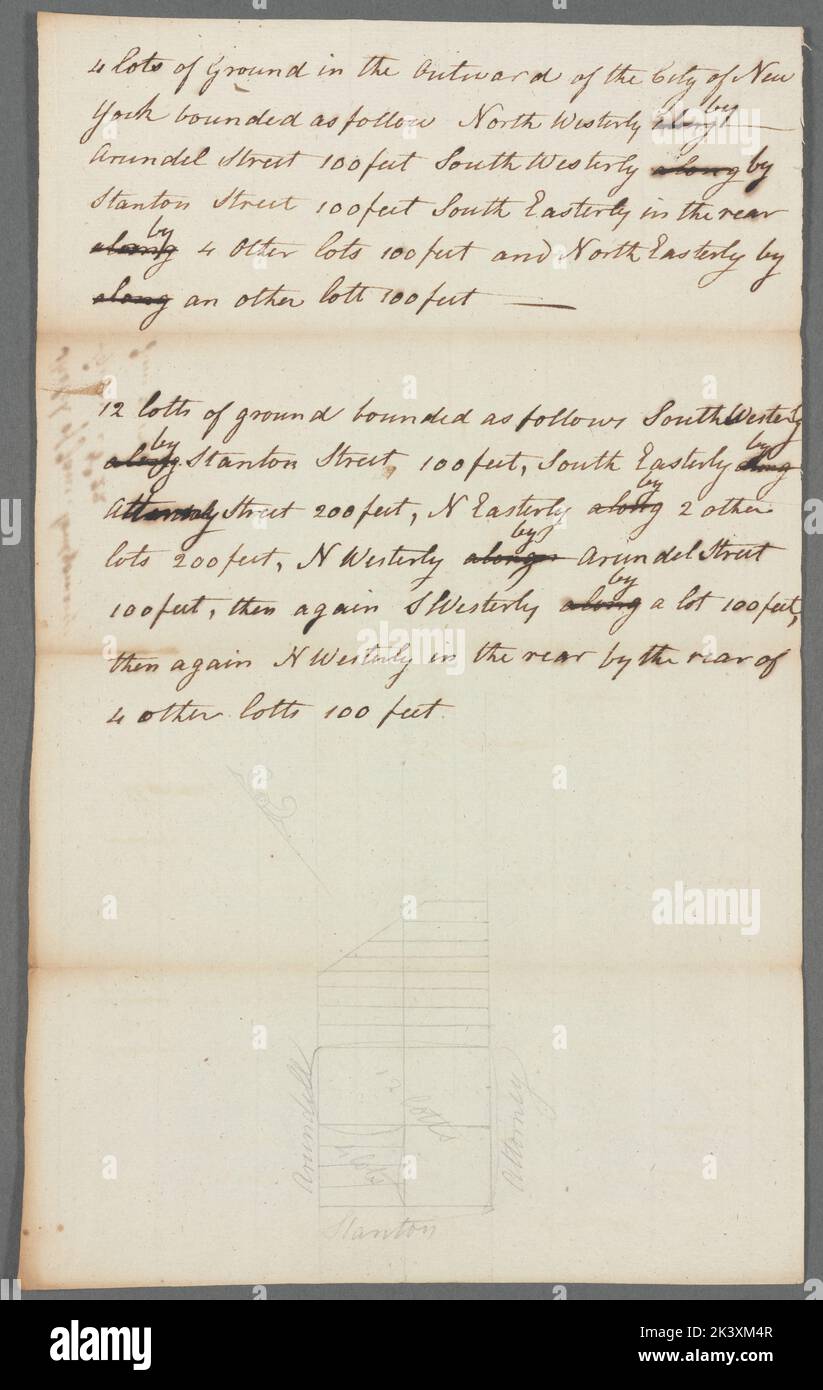 4 lots of Ground in the Outward of the City of New
York bounded as follow North Westerly along by
Arundel Street 100 feet South Westerly along by
Stanton Street 100 feet South Easterly in the rear
along by 4 Other lots 100 feet and North Easterly by
along an other lott 100 feet —
12 lotts of ground bounded as follows South Westerly
along by Stanton Street, 100 feet, South Easterly along by
Attorney Street 200 feet, N Easterly along by 2 other
lots 200 feet, N Westerly along by Arundel Street
100 feet, then again S Westerly along by a lot 100 feet,
then again N Westerly in the rear by the rear of
4 other lotts 100 feet
Arundell
lotts
Attorney
lots
Stanton
alamy
www.alamy.com
Image ID: 2K3XM4R